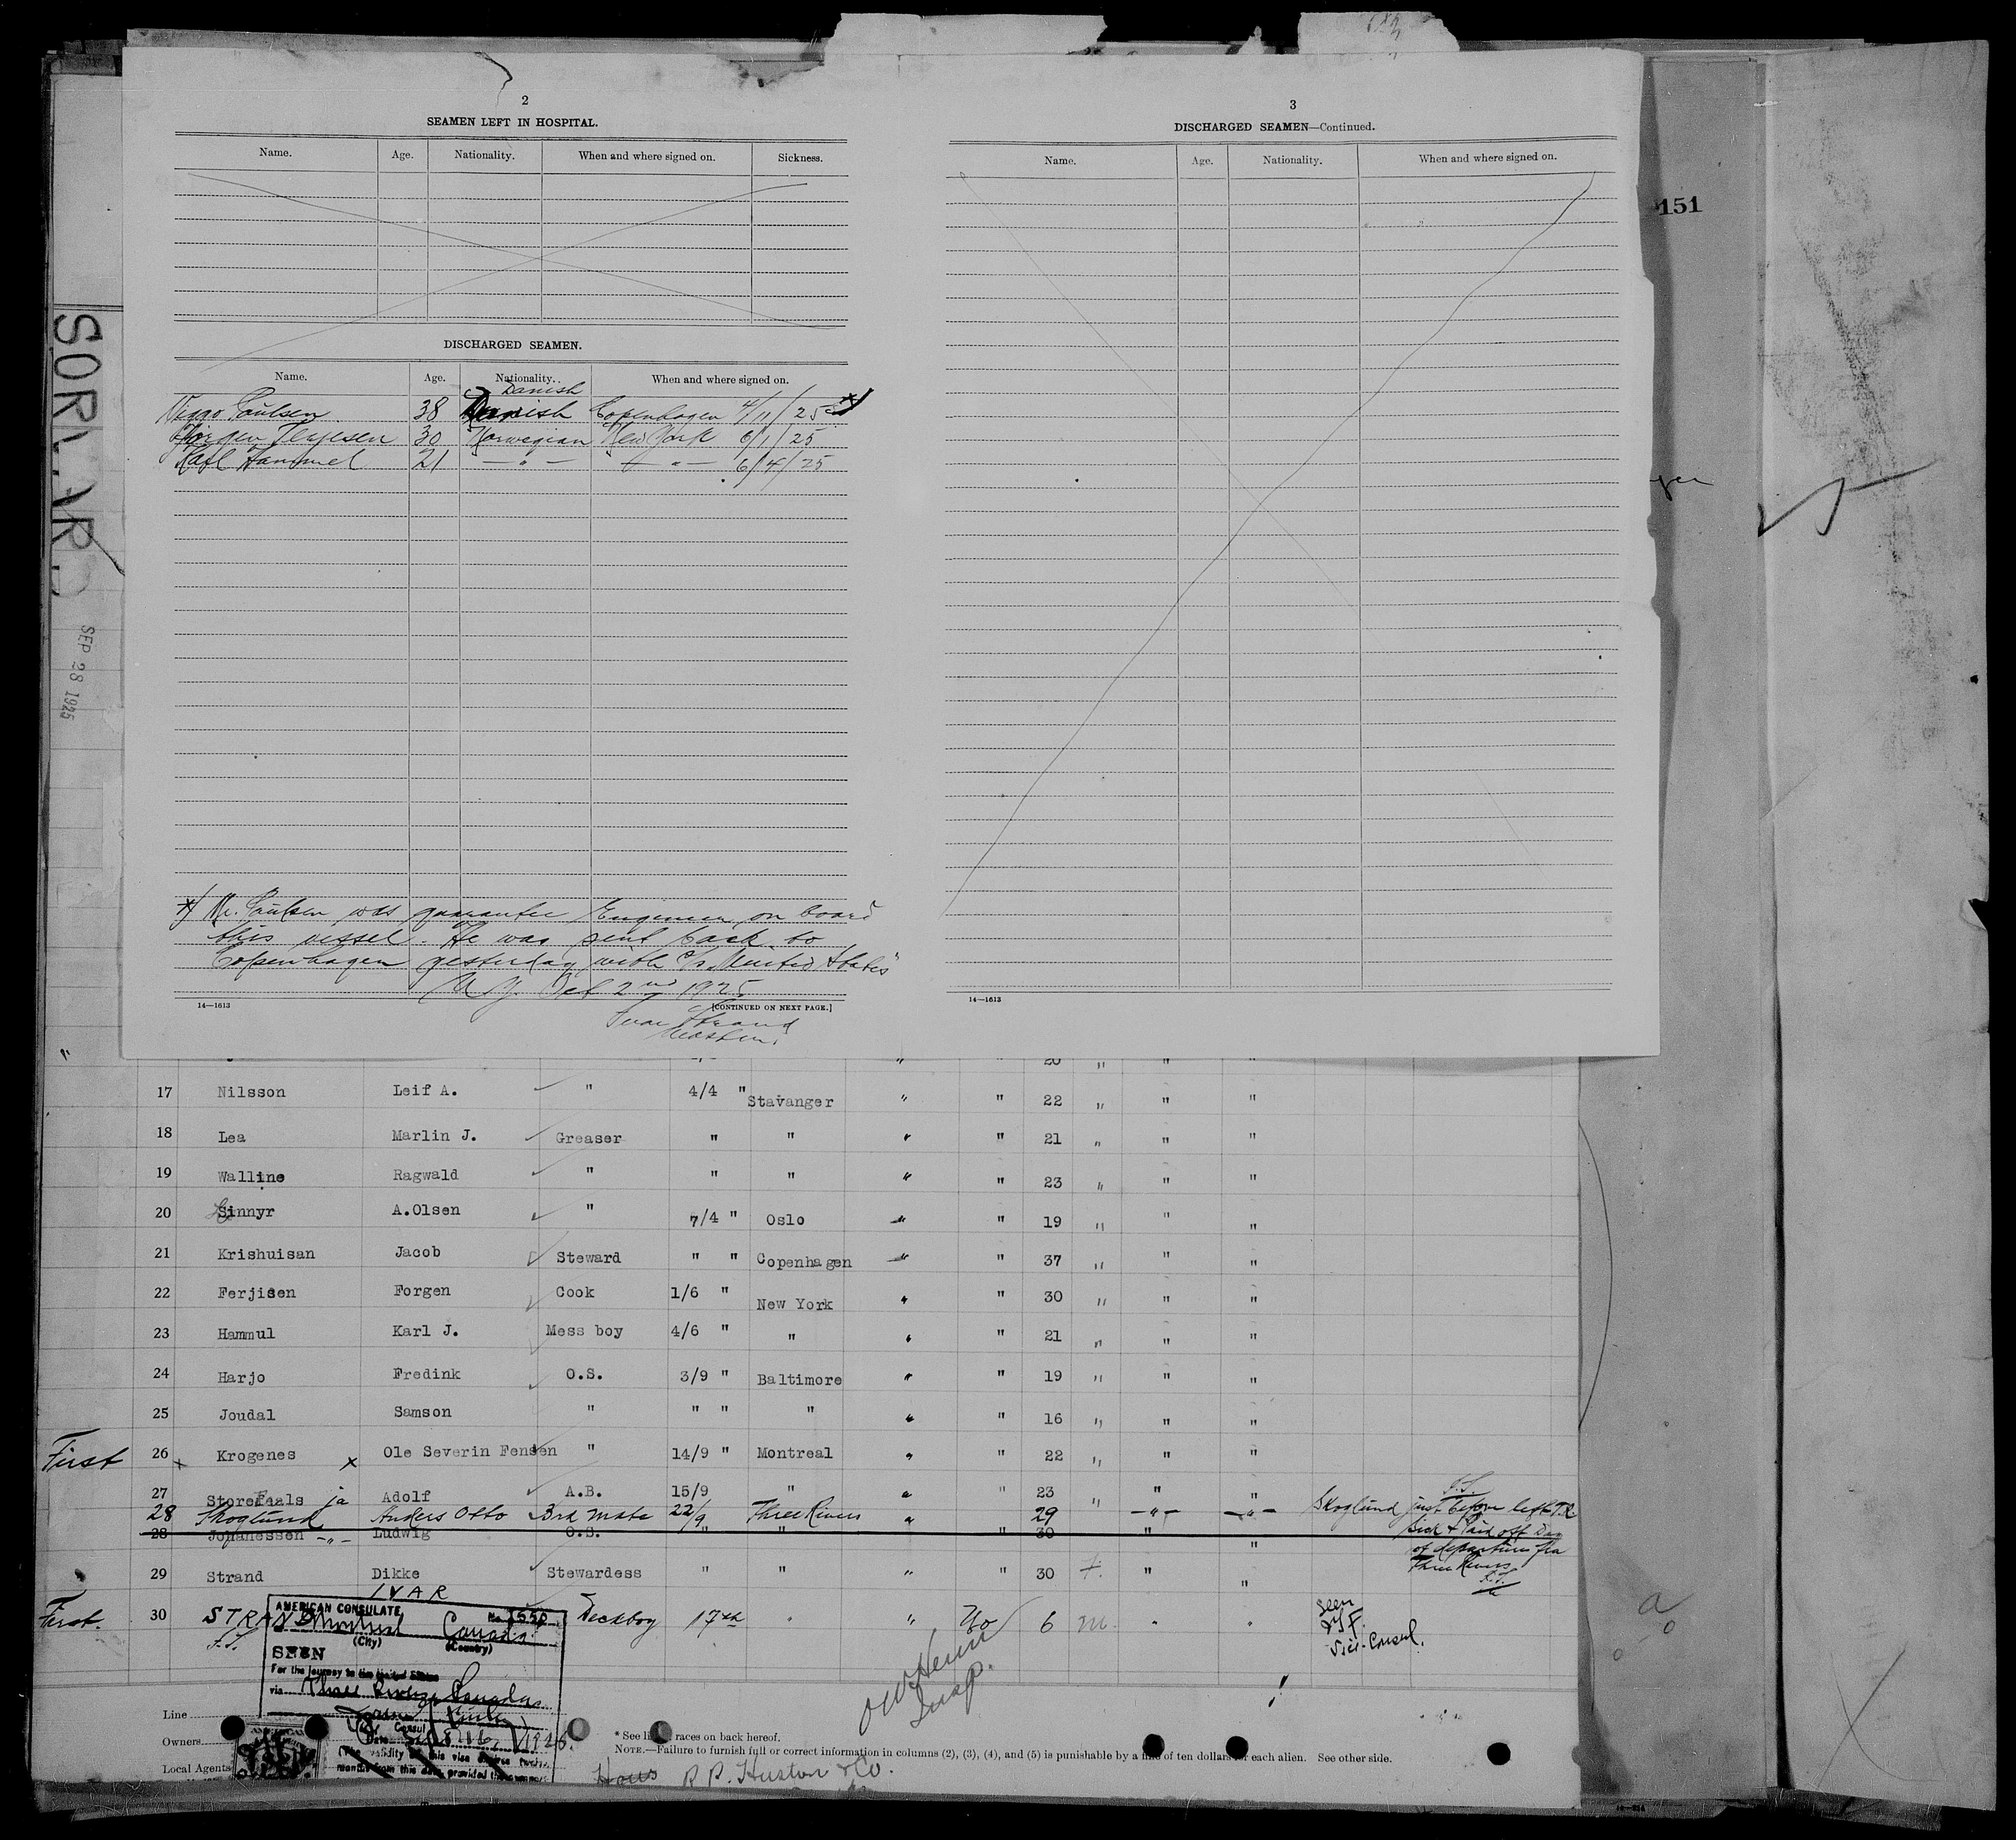 2
SEAMEN LEFT IN HOSPITAL.
Name. Age. Nationality. When and where signed on. Sickness.
DISCHARGED SEAMEN.
Name. Age. Nationality. When and where signed on.
Danish
Viggo Paulsen 38 Danish Copenhagen 4/11/25 *)
30 Norwegian New York 6/1/25
Karl Hammel 21 — " — — " — 6/4/25
*) Mr. Paulsen was guarantee Engineer on board
this vessel. He was sent back to
Copenhagen yesterday with S/S "United States"
N.Y. Oct 2nd 1925
14—1613 [CONTINUED ON NEXT PAGE.]
Ivar Strand
Master.
3
DISCHARGED SEAMEN—Continued.
Name. Age. Nationality. When and where signed on.
14—1613
151
SEP 28 1925
20 " " "
17 Nilsson Leif A. " 4/4 " Stavanger " " 22 " " "
18 Lea Marlin J. Greaser " " " " 21 " " "
19 Walline Ragwald " " " " " 23 " " "
20 Sinnyr A.Olsen " 7/4 " Oslo " " 19 " " "
21 Krishuisan Jacob Steward " " Copenhagen " " 37 " " "
22 Ferjisen Forgen Cook 1/6 " New York " " 30 " " "
23 Hammul Karl J. Mess boy 4/6 " " " " 21 " " "
24 Harjo Fredink O.S. 3/9 " Baltimore " " 19 " " "
25 Joudal Samson " " " " " " 16 " " "
First 26 x Krogenes x Ole Severin Fensen " 14/9 " Montreal " " 22 " " "
27 Storefaals ja Adolf A.B. 15/9 " " " 23 " " "
28 Skoglund Anders Otto 3rd mate 22/9 Three Rivers " 29 — " — — " — Skoglund just before left T.R.
28 Johanessen — " — Ludwig O.S. " " 30 " " Sick & Paid off Day
of departure fra
Three Rivers
29 Strand Dikke Stewardess " " " " 30 F. " "
First. 30 STRAND IVAR Deckboy 17th " " No 6 m. " "
Seen
Vice-Consul.
AMERICAN CONSULATE
Montreal Canada
(City) (Country)
SEEN
For the journey to the United States
via Three Rivers Canada
Consul
Insp.
Line
Owners
Local Agents
* See list races on back hereof.
NOTE.—Failure to furnish full or correct information in columns (2), (3), (4), and (5) is punishable by a fine of ten dollars for each alien. See other side.
R. P. Huston & Co.